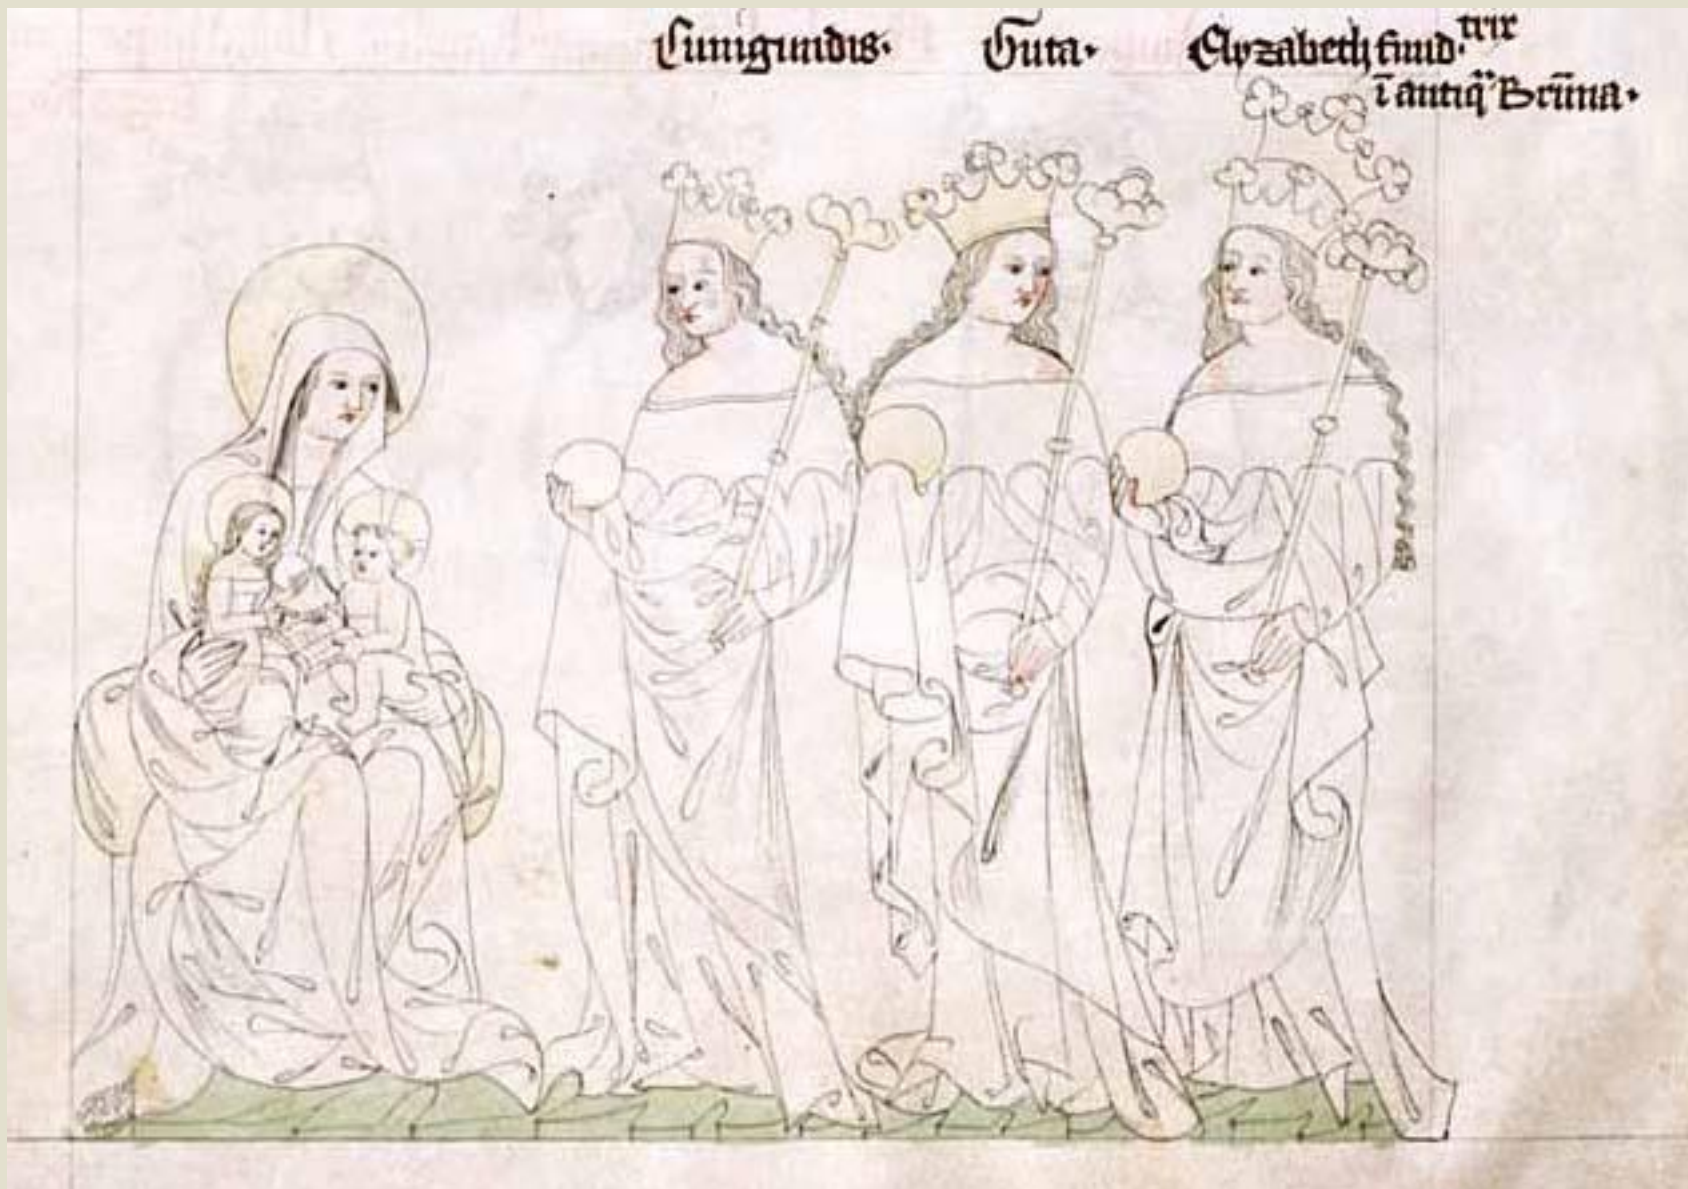 Cunigundis. Guta. Elyzabeth fund.trix
ī antiq̄ Brūna.